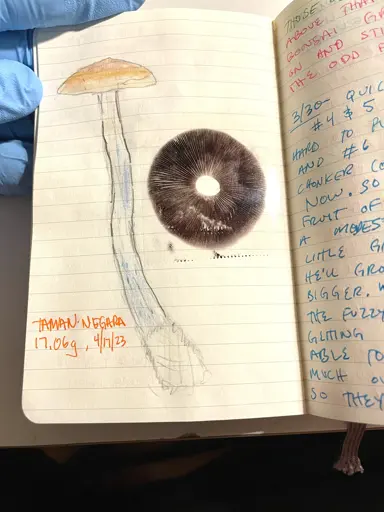 TAMAN NEGARA
17.06g, 4/17/23
THOSE
ABOVE THA
BONSAI G
ON AND STI
THE ODD
3/30- QUIC
#4 & 5
HARD TO P
AND #6
CHONKER CO
NOW. SO
FRUIT OF
A MODEST
LITTLE GR
HE'LL GRO
BIGGER. W
THE FUZZY
GETTING
ABLE TO
MUCH O
SO THEY